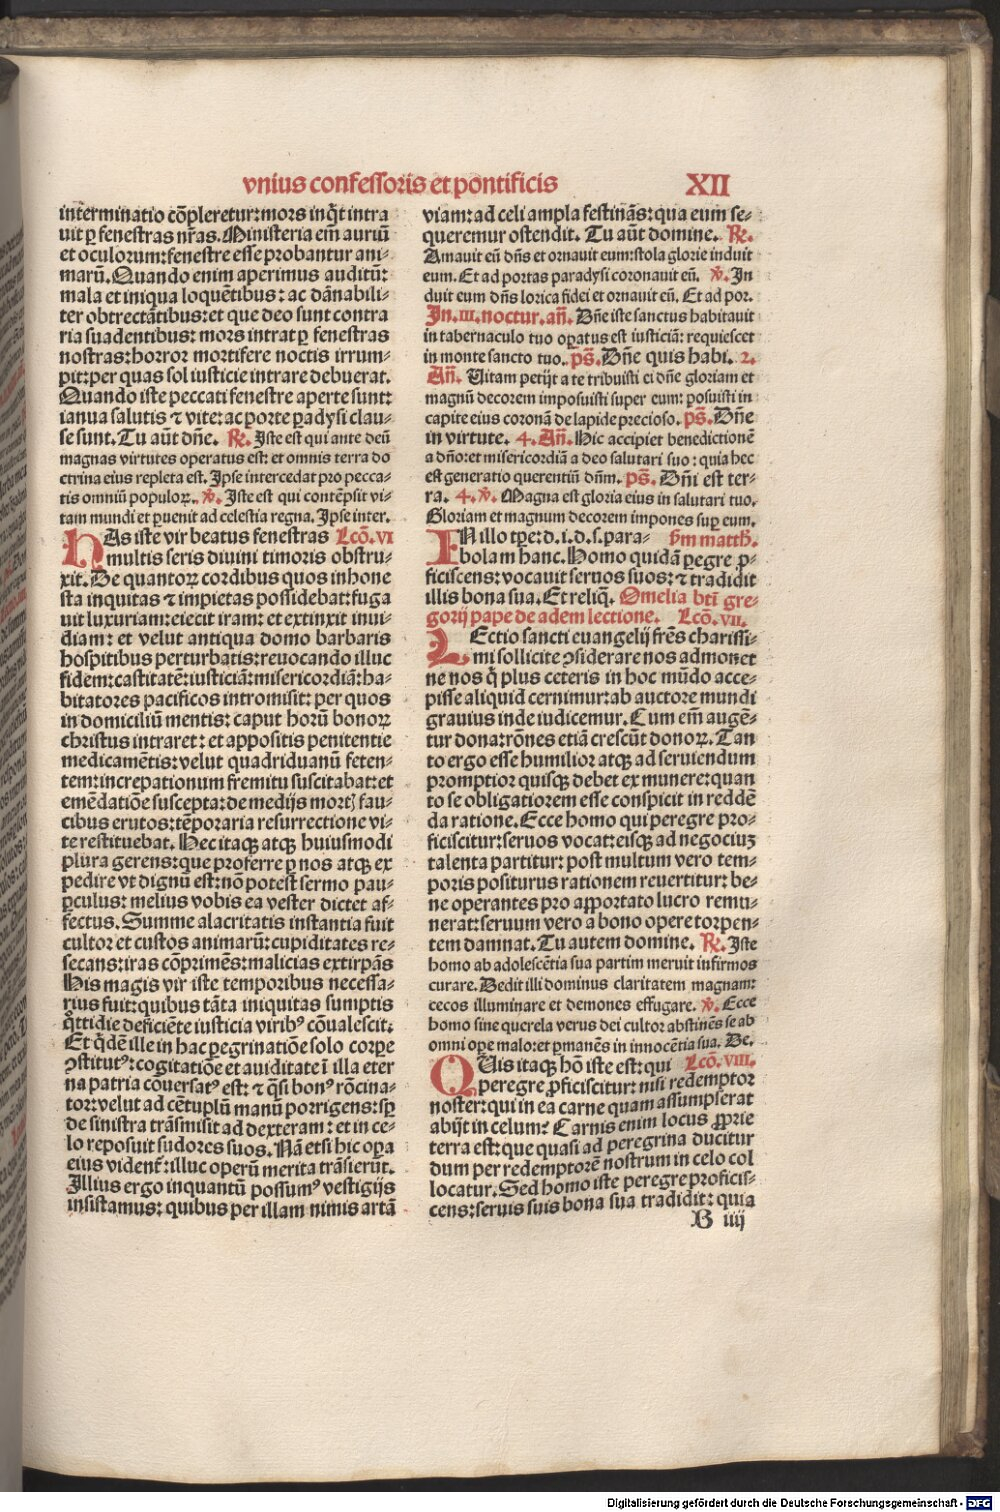 vnius confessoris et pontificis XII
interminatio cōpleretur: mors inq̄t intra
uit ꝑ fenestras nr̄as. Ministeria em̄ auriū
et oculorum: fenestre esse probantur ani-
marū. Quando enim aperimus auditū:
mala et iniqua loquētibus: ac dānabili-
ter obtrectātibus: et que deo sunt contra
ria suadentibus: mors intrat ꝑ fenestras
nostras: horror mortifere noctis irrum-
pit: per quas sol iusticie intrare debuerat.
Quando iste peccati fenestre aperte sunt:
ianua salutis ⁊ vite: ac porte ꝑadysi clau-
se sunt. Tu aūt dn̄e. ℟. Iste est qui ante deū
magnas virtutes operatus est: et omnis terra do
ctrina eius repleta est. Ipse intercedat pro pecca-
tis omniū populoꝝ. ℣. Iste est qui contēpsit vi-
tam mundi et ꝑuenit ad celestia regna. Ipse inter.
HAs iste vir beatus fenestras Lcō. VI
multis seris diuini timoris obstru-
xit. De quantoꝝ cordibus quos inhone
sta inquitas ⁊ impietas possidebat: fuga
uit luxuriam: eiecit iram: et extinxit inui-
diam: et velut antiqua domo barbaris
hospitibus perturbatis: reuocando illuc
fidem: castitatē: iusticiā: misericordiā: ha-
bitatores pacificos intromisit: per quos
in domiciliū mentis: caput horū bonoꝝ
christus intraret: et appositis penitentie
medicamētis: velut quadriduanū feten-
tem: increpationum fremitu suscitabat: et
emēdatiōe suscepta: de medijs mortꝭ fau-
cibus erutos: tēporaria resurrectione vi-
te restituebat. Hec itaqꝫ atqꝫ huiusmodi
plura gerens: que proferre ꝑ nos atqꝫ ex
pedire vt dignū est: nō potest sermo pau-
ꝑculus: melius vobis ea vester dictet af-
fectus. Summe alacritatis instantia fuit
cultor et custos animarū: cupiditates re-
secans: iras cōprimēs: malicias extirpās
His magis vir iste temporibus necessa-
rius fuit: quibus tāta iniquitas sumptis
q̊ttidie deficiēte iusticia viribꝰ cōualescit.
Et q̇dē ille in hac ꝑegrinatiōe solo corpe
ꝯstitutꝰ: cogitatiōe et auiditate ī illa eter
na patria cōuersatꝰ est: ⁊ q̄si bonꝰ rōcina-
tor: velut ad cētuplū manū porrigens: sꝑ
de sinistra trāsmisit ad dexteram: et in ce-
lo reposuit sudores suos. Nā etsi hic oꝑa
eius vident̄: illuc operū merita trāsierūt.
Illius ergo inquantū possumꝰ vestigijs
insistamus: quibus per illam nimis artā
viam: ad celi ampla festinās: qua eum se-
queremur ostendit. Tu aūt domine. ℟.
Amauit eū dn̄s et ornauit eum: stola glorie induit
eum. Et ad portas paradysi coronauit eū. ℣. In
duit eum dn̄s lorica fidei et ornauit eū. Et ad por.
In. III. noctur. an̄. Dn̄e iste sanctus habitauit
in tabernaculo tuo oꝑatus est iusticiā: requiescet
in monte sancto tuo. ps̄. Dn̄e quis habi. 2.
An̄. Vitam petijt a te tribuisti ei dn̄e gloriam et
magnū decorem imposuisti super eum: posuisti in
capite eius coronā de lapide precioso. ps̄. Dn̄e
in virtute. 4. An̄. Hic accipiet benedictionē
a dn̄o: et misericordiā a deo salutari suo: quia hec
est generatio querentiū dn̄m. ps̄. Dn̄i est ter-
ra. 4. ℣. Magna est gloria eius in salutari tuo.
Gloriam et magnum decorem impones suꝑ eum.
IN illo tꝑe: d. i. d. s. para- ẜm matth̄.
bolam hanc. Homo quidā ꝑegre ꝓ-
ficiscens: vocauit seruos suos: ⁊ tradidit
illis bona sua. Et reliq̄. Omelia bt̄i gre-
gorij pape de adem lectione. Lcō. VII.
LEctio sancti euangelij fr̄es charissi-
mi sollicite ꝯsiderare nos admonet
ne nos q̇ plus ceteris in hoc mūdo acce-
pisse aliquid cernimur: ab auctore mundi
grauius inde iudicemur. Cum em̄ augē-
tur dona: rōnes etiā crescūt donoꝝ. Tan
to ergo esse humilior atqꝫ ad seruiendum
promptior quisqꝫ debet ex munere: quan
to se obligatiorem esse conspicit in reddē
da ratione. Ecce homo qui peregre pro-
ficiscitur: seruos vocat: eisqꝫ ad negociuꝫ
talenta partitur: post multum vero tem-
poris positurus rationem reuertitur: be-
ne operantes pro apportato lucro remu-
nerat: seruum vero a bono opere torpen-
tem damnat. Tu autem domine. ℟. Iste
homo ab adolescētia sua partim meruit infirmos
curare. Dedit illi dominus claritatem magnam:
cecos illuminare et demones effugare. ℣. Ecce
homo sine querela verus dei cultor abstinēs se ab
omni oꝑe malo: et ꝑmanēs in innocētia sua. De.
QUis itaqꝫ hō iste est: qui Lcō. VIII.
peregre ꝓficiscitur: nisi redemptor
noster: qui in ea carne quam assumpserat
abijt in celum? Carnis enim locus ꝓprie
terra est: que quasi ad peregrina ducitur
dum per redemptorē nostrum in celo col
locatur. Sed homo iste peregre proficis-
cens: seruis suis bona sua tradidit: quia
B iiij
Digitalisierung gefördert durch die Deutsche Forschungsgemeinschaft - DFG